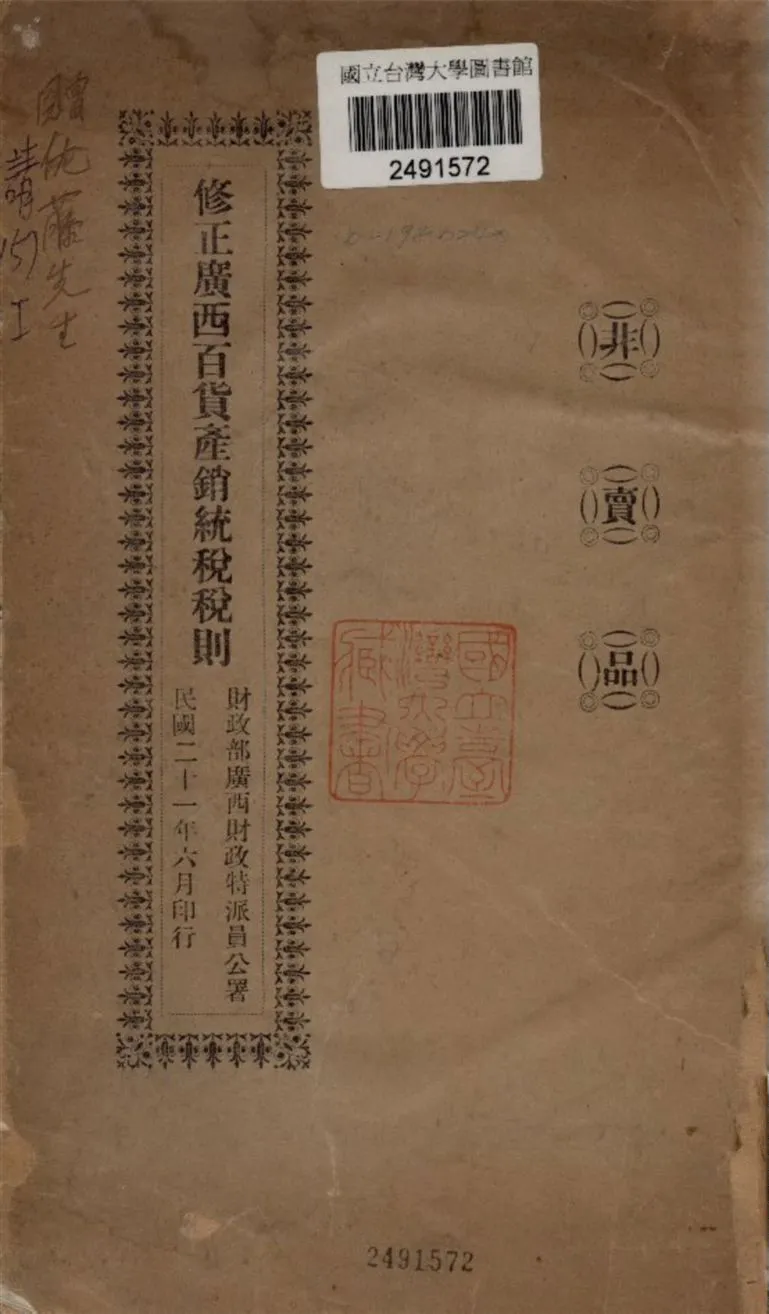 國立台灣大學圖書館
2491572
非賣品
修正廣西百貨產銷統稅稅則
財政部廣西財政特派員公署
民國二十一年六月印行
國立臺
灣大學
藏書
先生
2491572